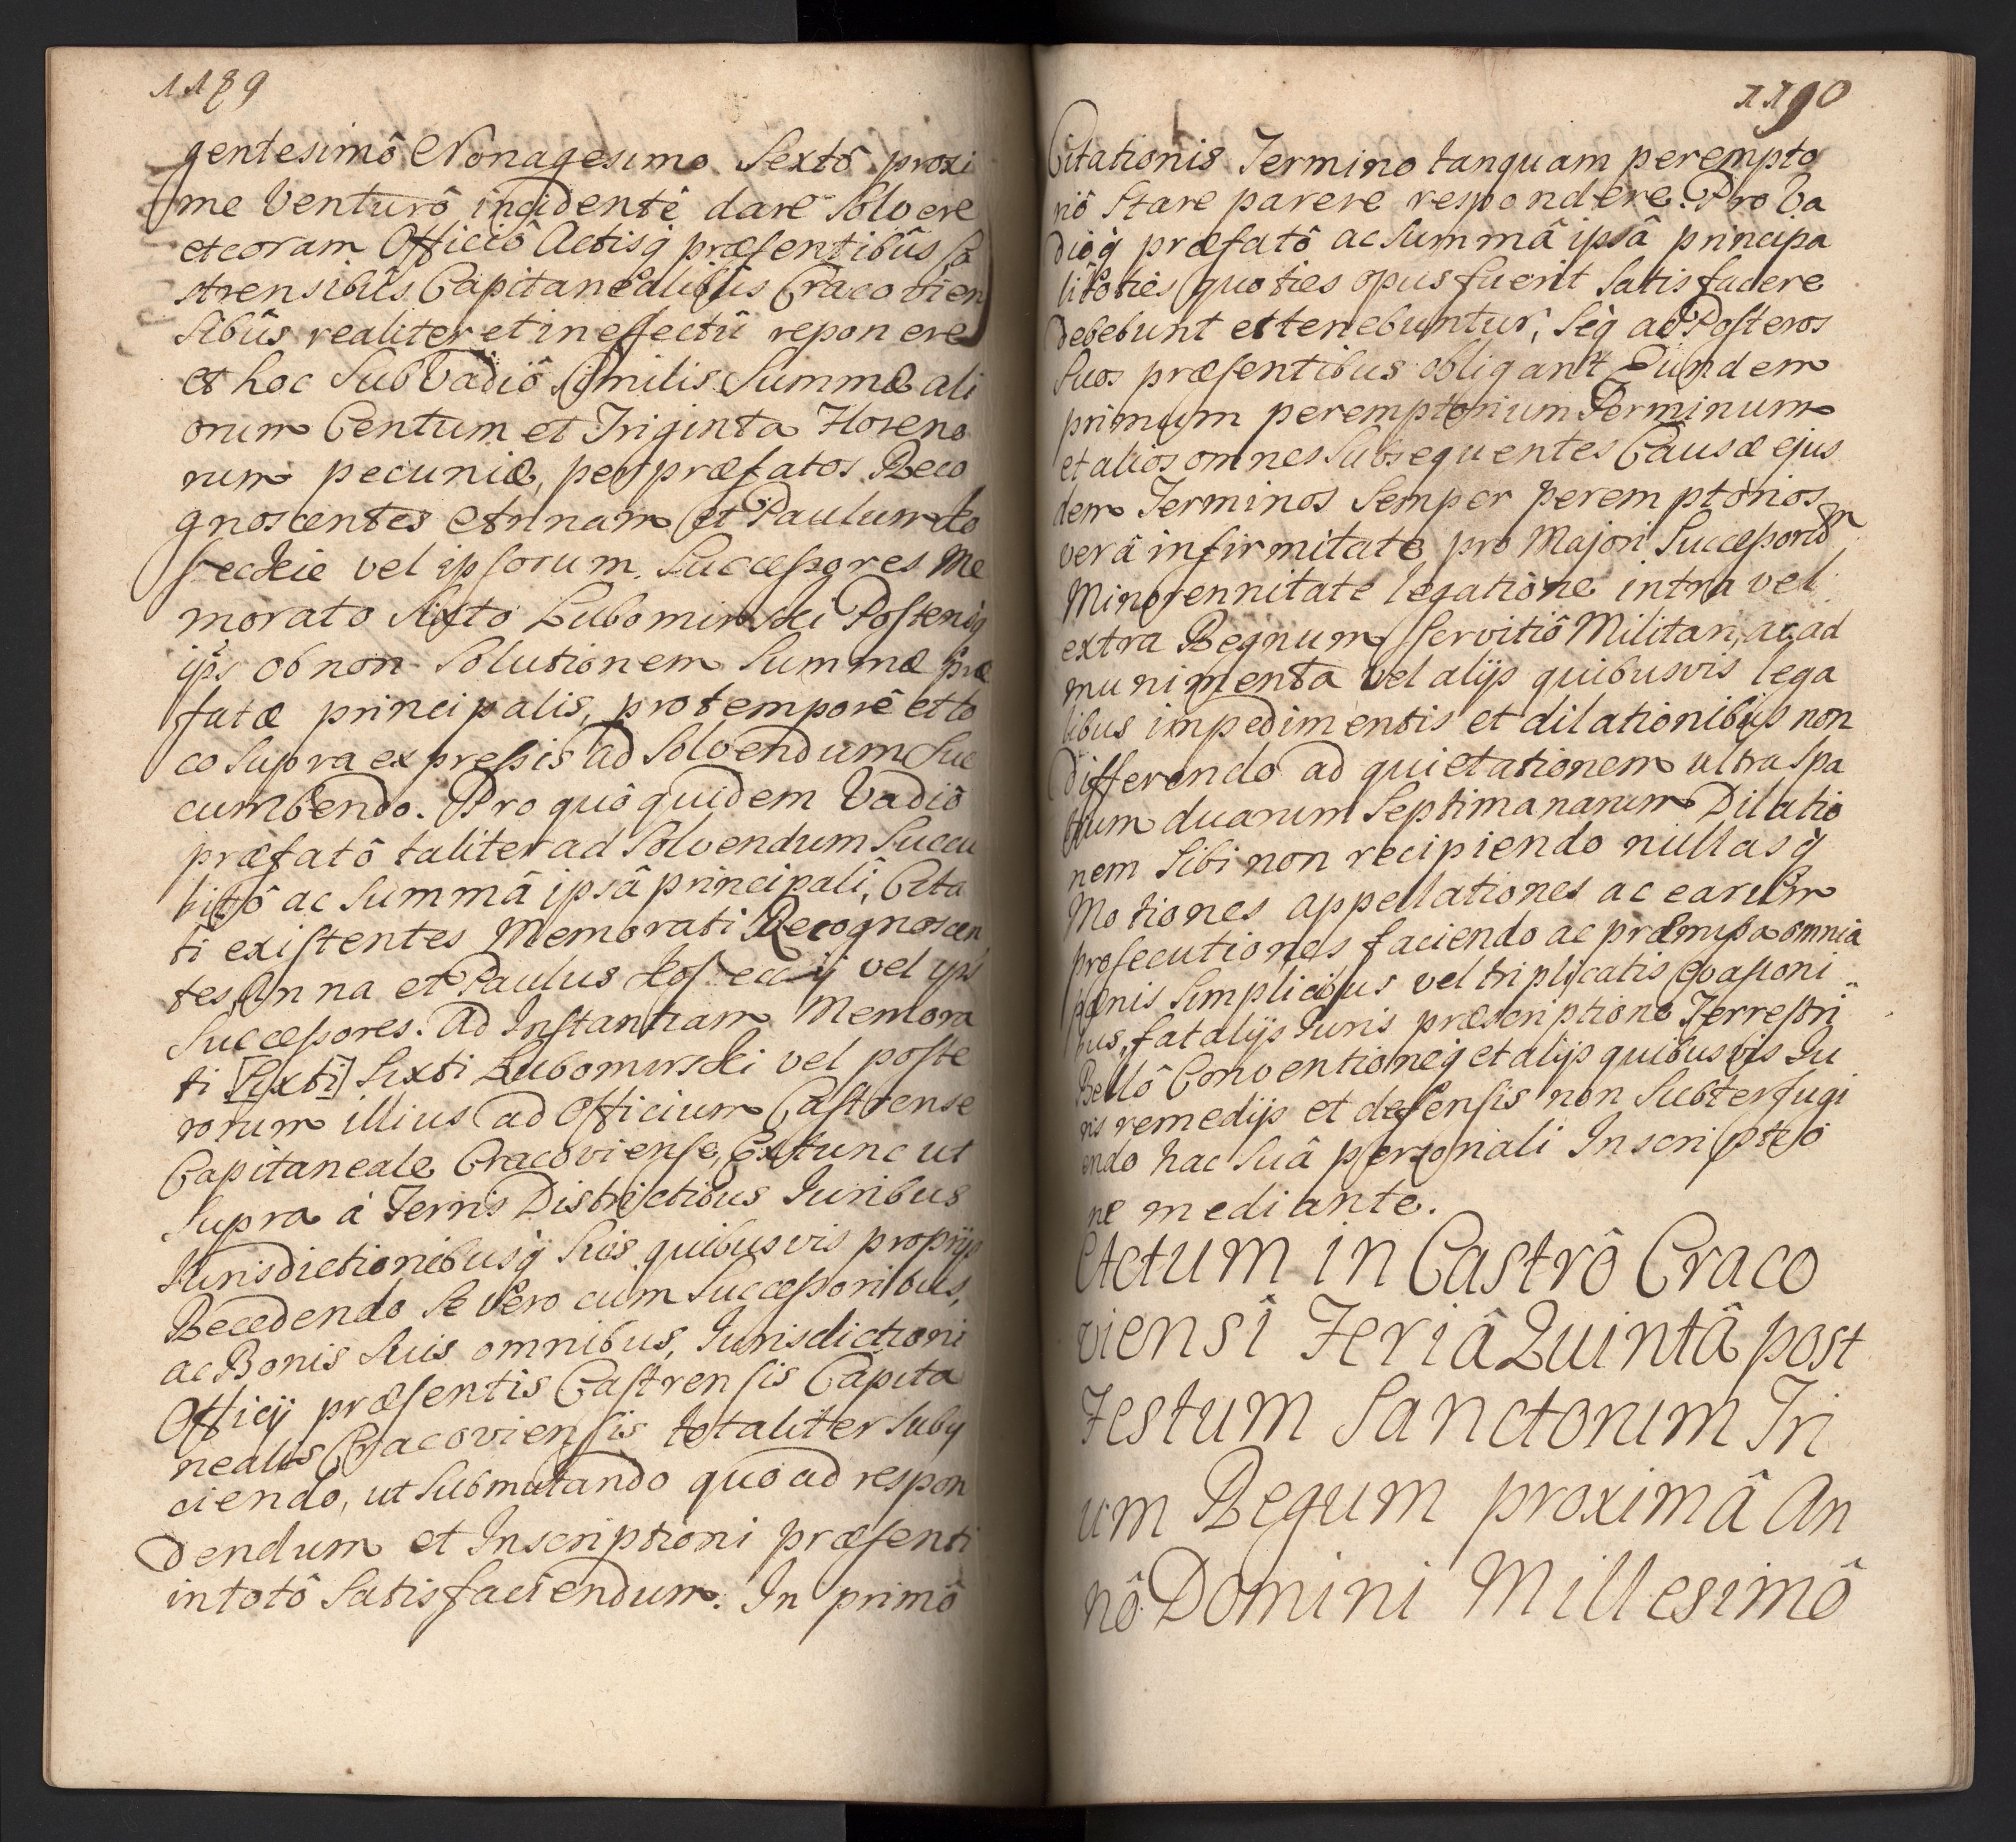 1189
gentesimô Nonagesimo Sextô proxi
me Venturô incidentê dare Solvere
et coram Officiô Actisq̷ præsentibûs Ca
strensibûs Capitanealibus Cracovien
sibûs realiter et in effectû reponere
et hoc Sub Vadiô Similis Summæ ali
orum Centum et Triginta Floreno
rum pecuniæ, per præfatos Reco
gnoscentes Annam et Paulum Ko
seckie vel ipsorum Successores Me
morato Sixto Lubomirski Posterisq̷
ip̃s ob non Solutionem Summæ præ
fatæ principalis, pro temporê et lo
co Supra expressis ad Solvendum Suc
cumbendo. Pro quô quidem Vadiô
præfatô taliter ad Solvendum Succu
bitô ac Summâ ipsâ principali, Cita
ti existentes Memorati Recognoscen
tes Anna et Paulus Koseccij vel ip̃s
Successores. Ad Instantiam Memora
ti [Sixti] Sixti Lubomirski vel poste
rorum illius ad Officium Castrense
Capitaneale Cracoviense, Extunc ut
Supra à Terris Districtibus Iuribus
Iurisdictionibusq̷ Suis quibusvis proprijs
Recedendo Se Vero cum Successoribus,
ac Bonis Suis omnibus, Iurisdictioni
Officij præsentis Castrensis Capita
nealis Cracoviensis totaliter Subij
ciendo, ut Submittando quo ad respon
dendum et Inscriptioni præsenti
in totô Satisfaciendum. In primô
1190
Citationis Termino tanquam perempto
riô Stare parere respondere. Pro Va
dioq̷ præfatô ac Summâ ipsâ principa
li toties quoties opus fuerit Satisfacere
debebunt et tenebuntur, Seq̷ ac Posteros
Suos præsentibus obligant Eundem
primum peremptorium Terminum
et alios omnes Subsequentes Causæ ejus
dem Terminos Semper peremptorios
verâ infirmitate pro Majori Successorum
Minorennitate legatione intra vel
extra Regnum Servitiô Militari, ac ad
munimenta vel alijs quibusvis lega
libus impedimentis et dilationibus non
differendo ad quietationem ultra Spa
tium duarum Septimanarum Dilatio
nem Sibi non recipiendo nullasq̷
Motiones appellationes ac earum
prosecutiones faciendo ac præmissa omnia
pœnis Simplicibus vel triplicatis Evasioni
bus, fatalijs Iuris præscriptione Terrestri
Bellô Conventioneq̷ et alijs quibusvis Iu
ris remedijs et defensis non Subterfugi
endo hac Suâ personali Inscriptio
ne mediante.
Actum in Castrô Craco
viensî Feriâ Quintâ post
Festum Sanctorum Tri
um Regum proximâ An
nô Domini Millesimô